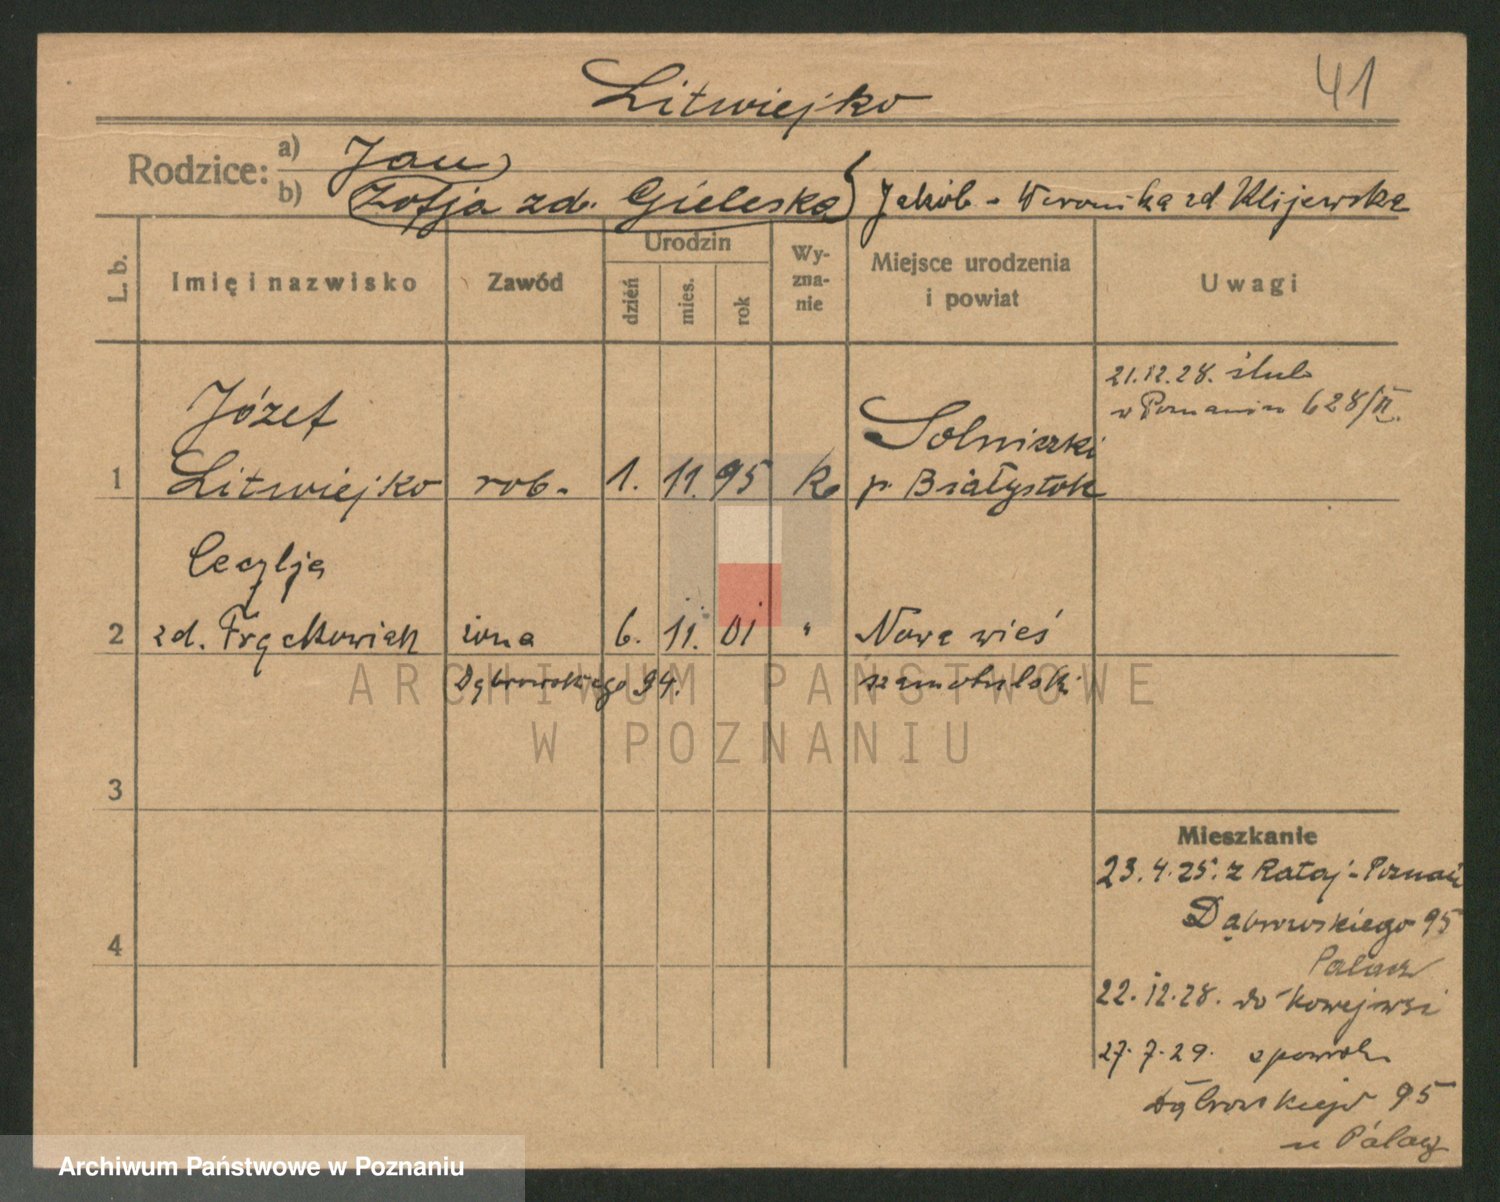 Litwiejko
41
Rodzice:
a) Jan
b) Zofja zd. Gieleska Jakób - Weronika zd Klijewska
L. b.
Imię i nazwisko
Zawód
Urodzin
dzień
mies.
rok
Wy-
zna-
nie
Miejsce urodzenia
i powiat
Uwagi
21.12.28. ślub
w Poznaniu 628/II.
Józef
Solniczki
1 Litwiejko rob. 1. 11. 95 Rz p. Białystok
Cecylja
2 zd. Frąckowiak żona 6. 11. 01 " Nowa wieś
Dąbrowskiego 94. szamotulski
ARCHIWUM PAŃSTWOWE
W POZNANIU
3
4
Mieszkanie
23.4.25. z Rataj-Poznań
Dąbrowskiego 95
Palacz
22.12.28. do
27.7.29. z powrot.
Dąbrowskiego 95
u Palacz
Archiwum Państwowe w Poznaniu